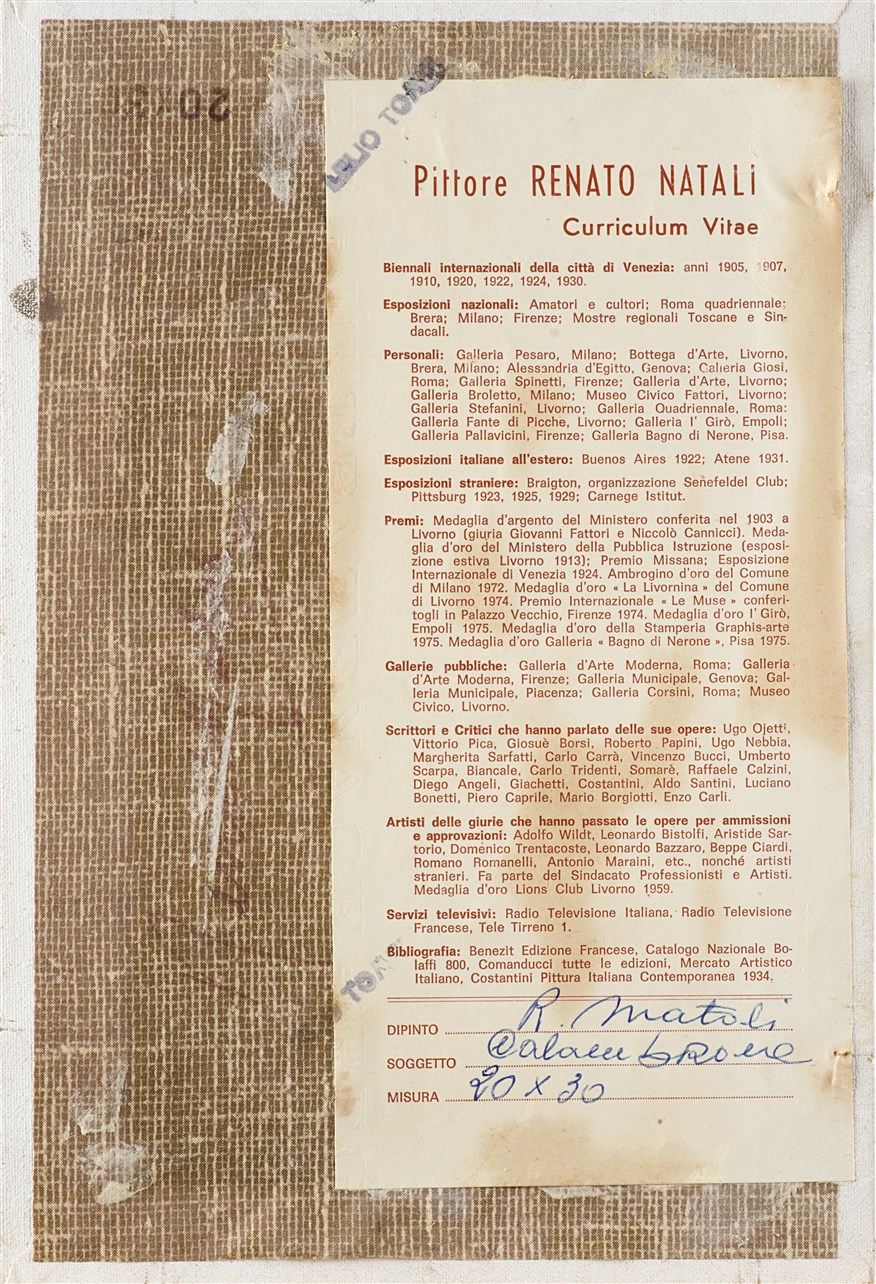 20
LELIO TO
Pittore RENATO NATALI
Curriculum Vitae
Biennali internazionali della città di Venezia: anni 1905, 1907,
1910, 1920, 1922, 1924, 1930.
Esposizioni nazionali: Amatori e cultori; Roma quadriennale;
Brera; Milano; Firenze; Mostre regionali Toscane e Sin-
dacali.
Personali: Galleria Pesaro, Milano; Bottega d'Arte, Livorno,
Brera, Milano; Alessandria d'Egitto, Genova; Galleria Giosi,
Roma; Galleria Spinetti, Firenze; Galleria d'Arte, Livorno;
Galleria Broletto, Milano; Museo Civico Fattori, Livorno;
Galleria Stefanini, Livorno; Galleria Quadriennale, Roma:
Galleria Fante di Picche, Livorno; Galleria l' Girò, Empoli;
Galleria Pallavicini, Firenze; Galleria Bagno di Nerone, Pisa.
Esposizioni italiane all'estero: Buenos Aires 1922; Atene 1931.
Esposizioni straniere: Braigton, organizzazione Senefeldel Club;
Pittsburg 1923, 1925, 1929; Carnege Istitut.
Premi: Medaglia d'argento del Ministero conferita nel 1903 a
Livorno (giuria Giovanni Fattori e Niccolò Cannicci). Meda-
glia d'oro del Ministero della Pubblica Istruzione (esposi-
zione estiva Livorno 1913); Premio Missana; Esposizione
Internazionale di Venezia 1924. Ambrogino d'oro del Comune
di Milano 1972. Medaglia d'oro « La Livornina » del Comune
di Livorno 1974. Premio Internazionale « Le Muse » conferi-
togli in Palazzo Vecchio, Firenze 1974. Medaglia d'oro l' Girò,
Empoli 1975. Medaglia d'oro della Stamperia Graphis-arte
1975. Medaglia d'oro Galleria « Bagno di Nerone », Pisa 1975.
Gallerie pubbliche: Galleria d'Arte Moderna, Roma; Galleria
d'Arte Moderna, Firenze; Galleria Municipale, Genova; Gal-
leria Municipale, Piacenza; Galleria Corsini, Roma; Museo
Civico, Livorno.
Scrittori e Critici che hanno parlato delle sue opere: Ugo Ojetti,
Vittorio Pica, Giosuè Borsi, Roberto Papini, Ugo Nebbia,
Margherita Sarfatti, Carlo Carrà, Vincenzo Bucci, Umberto
Scarpa, Biancale, Carlo Tridenti, Somarè, Raffaele Calzini,
Diego Angeli, Giachetti, Costantini, Aldo Santini, Luciano
Bonetti, Piero Caprile, Mario Borgiotti, Enzo Carli.
Artisti delle giurie che hanno passato le opere per ammissioni
e approvazioni: Adolfo Wildt, Leonardo Bistolfi, Aristide Sar-
torio, Domenico Trentacoste, Leonardo Bazzaro, Beppe Ciardi,
Romano Romanelli, Antonio Maraini, etc., nonché artisti
stranieri. Fa parte del Sindacato Professionisti e Artisti.
Medaglia d'oro Lions Club Livorno 1959.
Servizi televisivi: Radio Televisione Italiana, Radio Televisione
Francese, Tele Tirreno 1.
Bibliografia: Benezit Edizione Francese, Catalogo Nazionale Bo-
laffi 800, Comanducci tutte le edizioni, Mercato Artistico
Italiano, Costantini Pittura Italiana Contemporanea 1934.
DIPINTO R. Natali
SOGGETTO Calambrone
MISURA 20 x 30